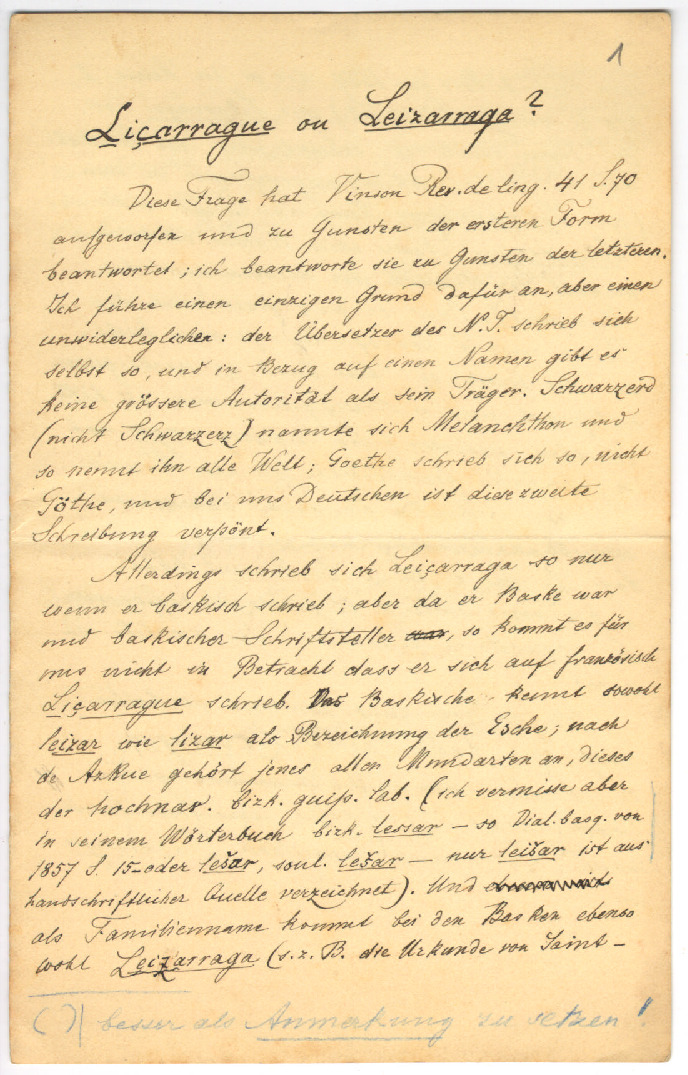 1
Liçarrague ou Leizarraga?
Diese Frage hat Vinson Rev. de ling. 41 S. 70
aufgeworfen und zu Gunsten der ersteren Form
beantwortet; ich beantworte sie zu Gunsten der letzteren.
Ich führe einen einzigen Grund dafür an, aber einen
unwiderleglichen: der Übersetzer des N.T. schrieb sich
selbst so, und in Bezug auf einen Namen gibt es
keine grössere Autorität als sein Träger. Schwarzerd
(nicht Schwarzerz) nannte sich Melanchthon und
so nennt ihn alle Welt; Goethe schrieb sich so, nicht
Göthe, und bei uns Deutschen ist diese zweite
Schreibung verpönt.
Allerdings schrieb sich Leiçarraga so nur
wenn er baskisch schrieb; aber da er Baske war
und baskischer Schriftsteller, so kommt es für
uns nicht in Betracht dass er sich auf französisch
Liçarrague schrieb. Das Baskische kennt sowohl
leizar wie lizar als Bezeichnung der Esche; nach
de Azkue gehört jenes allen Mundarten an, dieses
der hochnav. bizk. guip. lab. (ich vermisse aber
in seinem Wörterbuch bizk. lessar – so Dial. basq. von
1857 S. 15 – oder lešar, soul. ležar – nur leižar ist aus
handschriftlicher Quelle verzeichnet). Und
als Familienname kommt bei den Basken ebenso
wohl Leizarraga (s. z. B. die Urkunde von Saint-
( ) | besser als Anmerkung zu setzen!